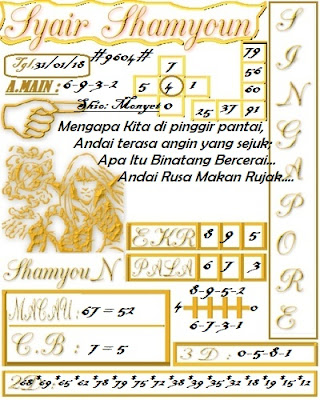 Syair Shamyoun
Tgl.31/01/18 #9604#
A.MAIN : 6-9-3-2
7
5 4 1
0
Shio: Monyet
79
56
60
25 37 91
SINGAPORE
Mengapa Kita di pinggir pantai,
Andai terasa angin yang sejuk;
Apa Itu Binatang Bercerai...
Andai Rusa Makan Rujak....
EKR 8 9 5
ShamyouN
PALA 6 7 3
8-9-5-2
4 0
6-7-3-1
MACAU : 67 = 52
C.B : 7 = 5
3 D : 0-5-8-1
2D 68*69*65*62*78*79*75*72*38*39*35*32*18*19*15*12